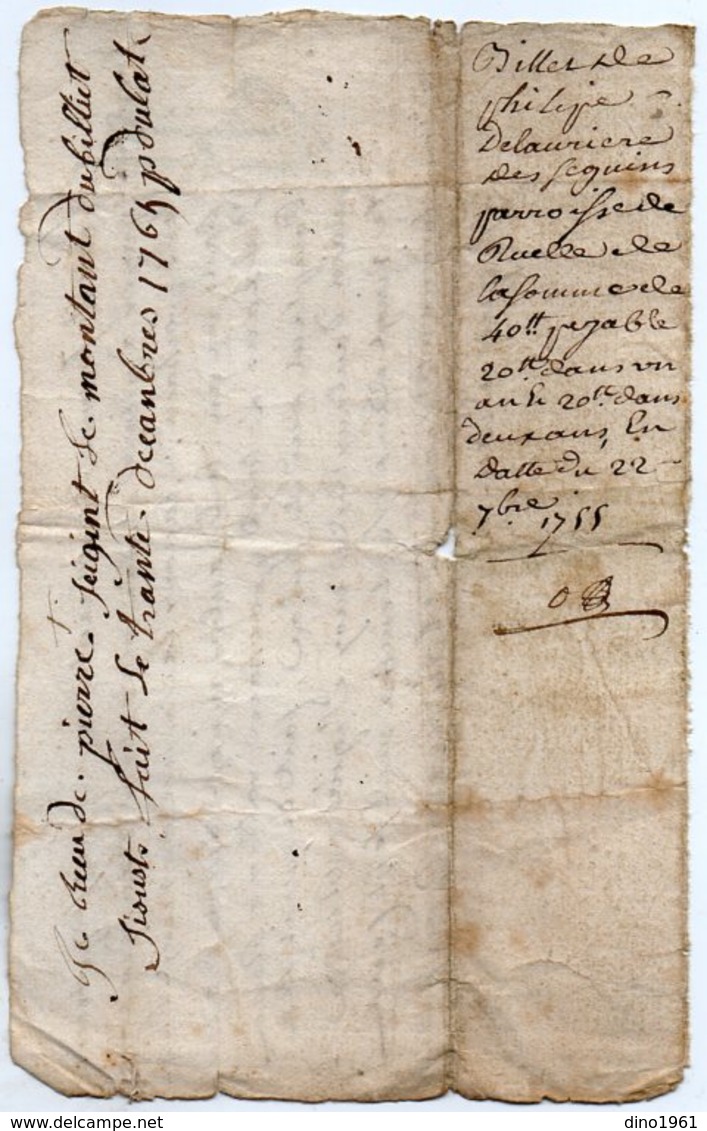 Billet de
philipe
Delauriere
des seguins
parroisse de
Ruelle de
la somme de
40tt payable
20tt dans vn
an & 20tt dans
deux ans, En
datte du 22
7bre 1755
Je de pierre seigint le montant du billiet
fait le trante decanbres 1765
dino1961